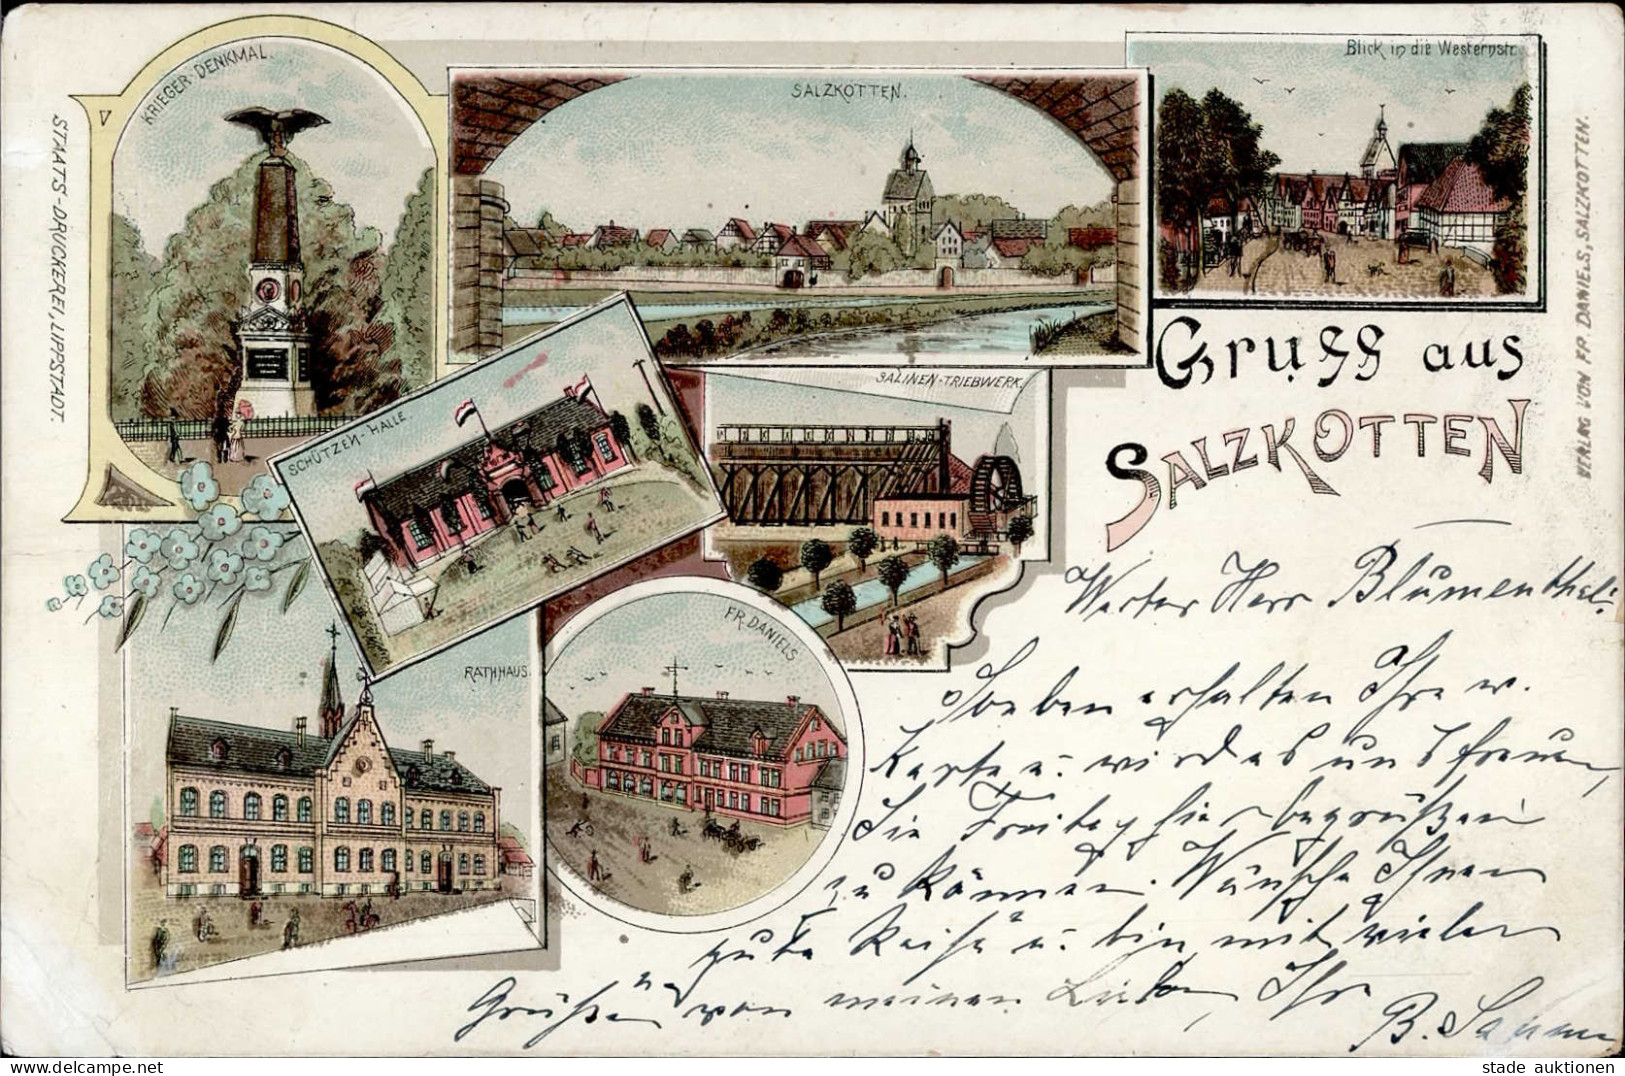 KRIEGER-DENKMAL.
SALZKOTTEN.
Blick in die Westernstr.
STAATS-DRUCKEREI, LIPPSTADT.
VERLAG VON FR. DANIELS, SALZKOTTEN.
Gruss aus
SALZKOTTEN
SALINEN-TRIEBWERK.
SCHÜTZEN-HALLE.
FR. DANIELS
RATHHAUS.
Werter Herr Blumenthal!
Soeben erhalten Ihre w.
Karte u. wird es uns freuen,
Sie Freitag hier begrüßen
zu können. Wünsche Ihnen
gute Reise u. bin mit vielen
Grüßen von meinen Lieben, Ihr
B.
stade auktionen